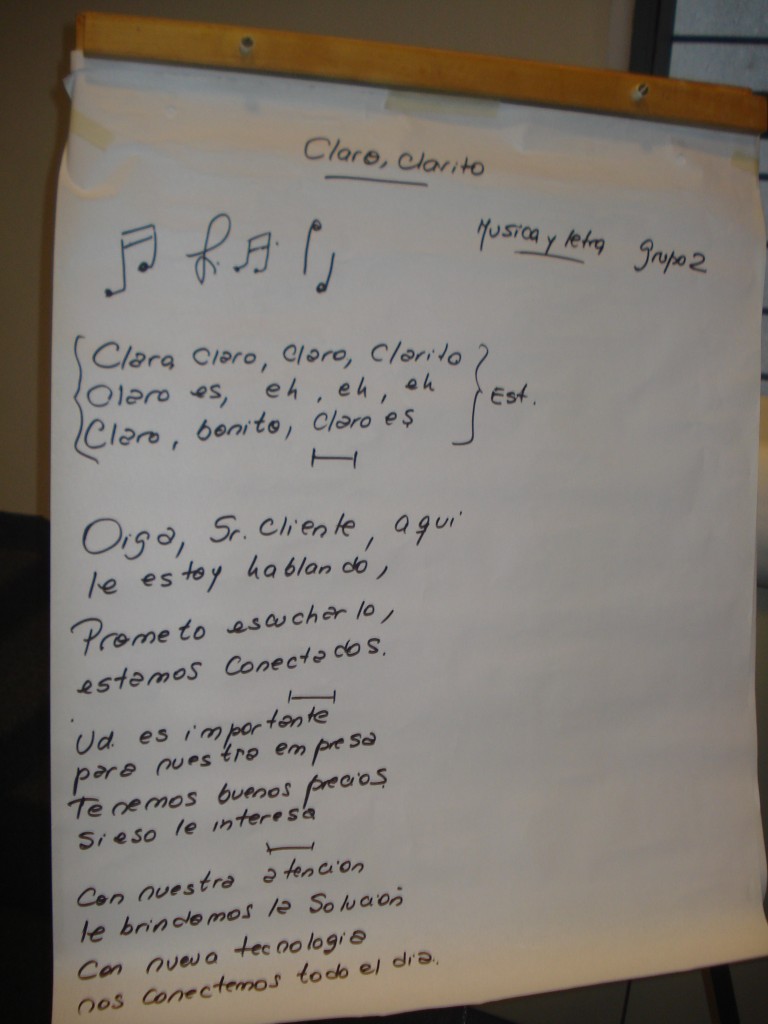 Claro, Clarito
Musica y letra grupo 2
Clara claro, claro, Clarito
Claro es, eh, eh, eh
Claro, bonito, claro es
Est.
Oiga, Sr. Cliente, aqui
le estoy hablando,
Prometo escucharlo,
estamos conectados.
Ud. es importante
para nuestra empresa
Tenemos buenos precios
si eso le interesa
Con nuestra atencion
le brindamos la solución
Con nueva tecnologia
nos conectemos todo el dia.